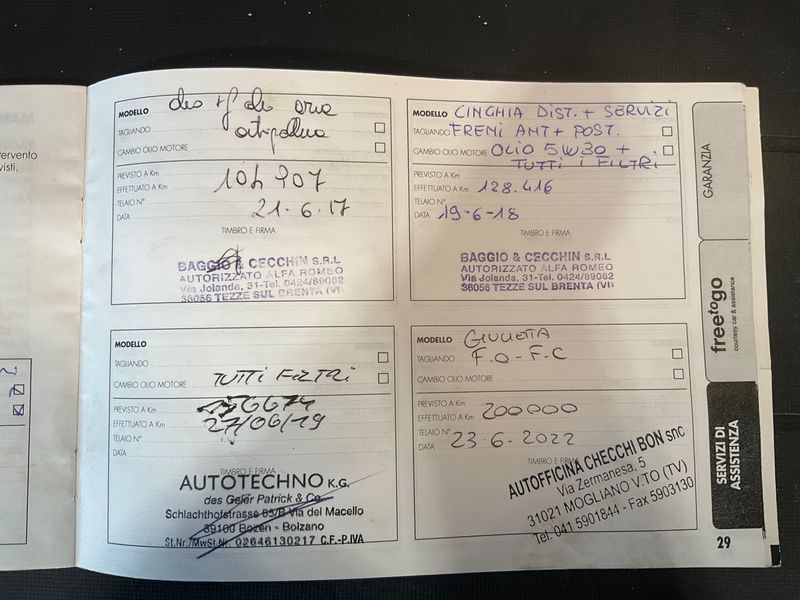 ervento
visti.
MODELLO
TAGLIANDO
CAMBIO OLIO MOTORE
PREVISTO A Km
EFFETTUATO A Km
TELAIO N°
DATA 21-6-17
TIMBRO E FIRMA
BAGGIO & CECCHIN S.R.L
AUTORIZZATO ALFA ROMEO
Via Jolanda, 31-Tel. 0424/89062
36056 TEZZE SUL BRENTA (VI)
MODELLO CINGHIA DIST. + SERVIZI
TAGLIANDO FRENI ANT + POST.
CAMBIO OLIO MOTORE OLIO 5W30 +
TUTTI I FILTRI
PREVISTO A Km
EFFETTUATO A Km 128.416
TELAIO N°
DATA 19-6-18
TIMBRO E FIRMA
BAGGIO & CECCHIN S.R.L
AUTORIZZATO ALFA ROMEO
Via Jolanda, 31-Tel. 0424/89062
36056 TEZZE SUL BRENTA (VI)
MODELLO
TAGLIANDO
CAMBIO OLIO MOTORE TUTTI FILTRI
PREVISTO A Km
EFFETTUATO A Km 27/06/19
TELAIO N°
DATA
TIMBRO E FIRMA
AUTOTECHNO K.G.
des Geier Patrick & Co.
Schlachthofstrasse 65/B Via del Macello
39100 Bozen - Bolzano
St.Nr./MwSt.Nr. 02646130217 C.F.-P.IVA
MODELLO GIULIETTA
TAGLIANDO F.O - F.C
CAMBIO OLIO MOTORE
PREVISTO A Km
EFFETTUATO A Km 200000
TELAIO N°
DATA 23-6-2022
TIMBRO E FIRMA
AUTOFFICINA CHECCHI BON snc
Via Zermanesa, 5
31021 MOGLIANO V.TO (TV)
Tel. 041 5901844 - Fax 5903130
GARANZIA
freetogo
courtesy car & assistance
SERVIZI DI
ASSISTENZA
29